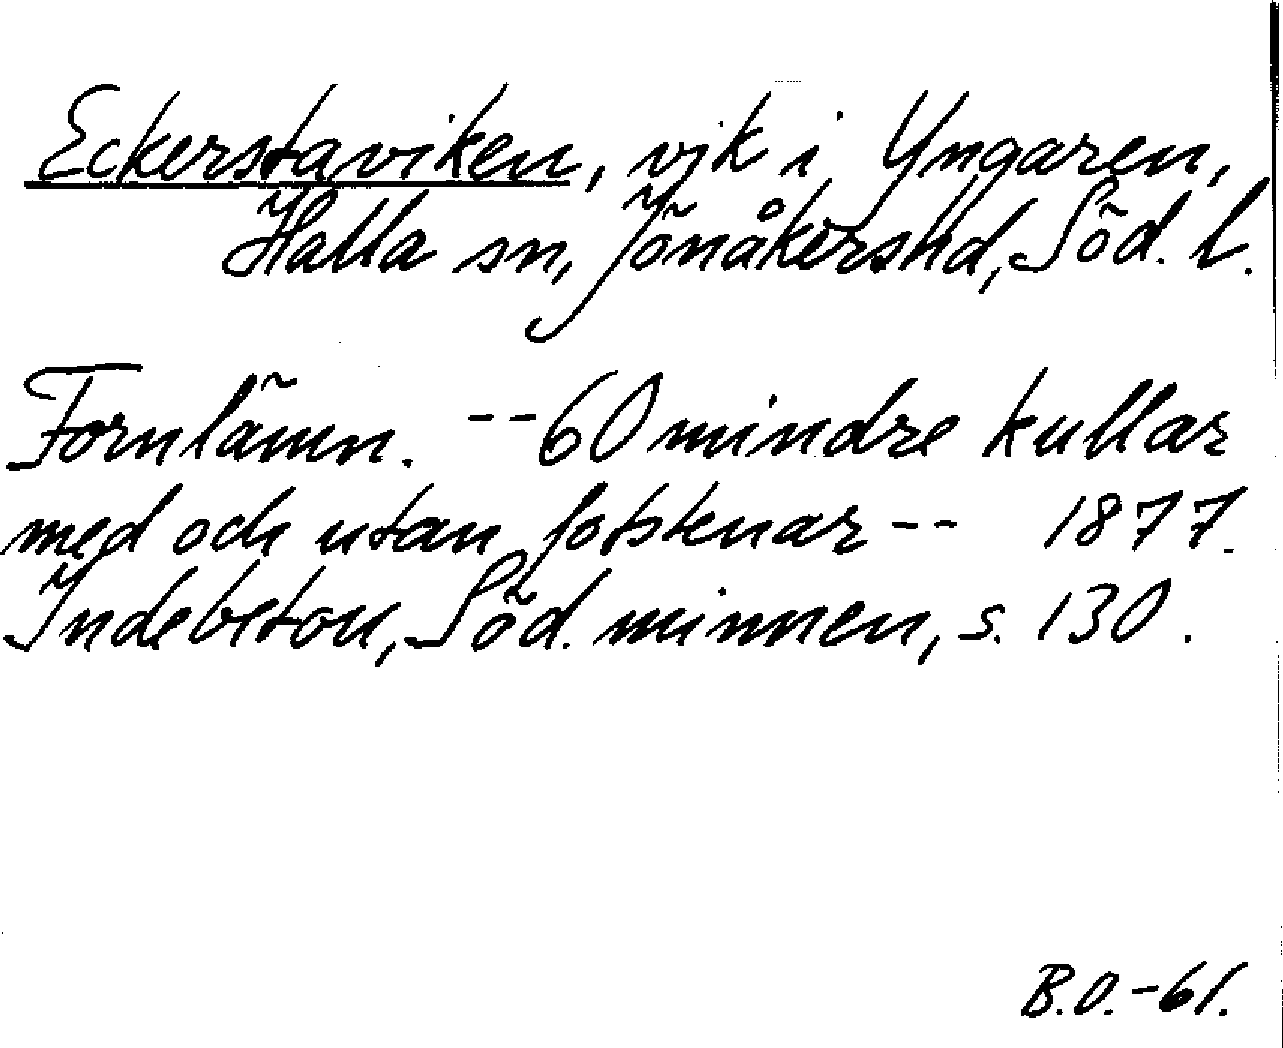 Eckerstaviken, vik i Yngaren,
Halla sn, Jönåkershd, Söd. l.
Fornlämn. -- 60 mindre kullar
med och utan fotsknar -- 1877.
Indebetou, Söd. minnen, s. 130.
B.O.-61.